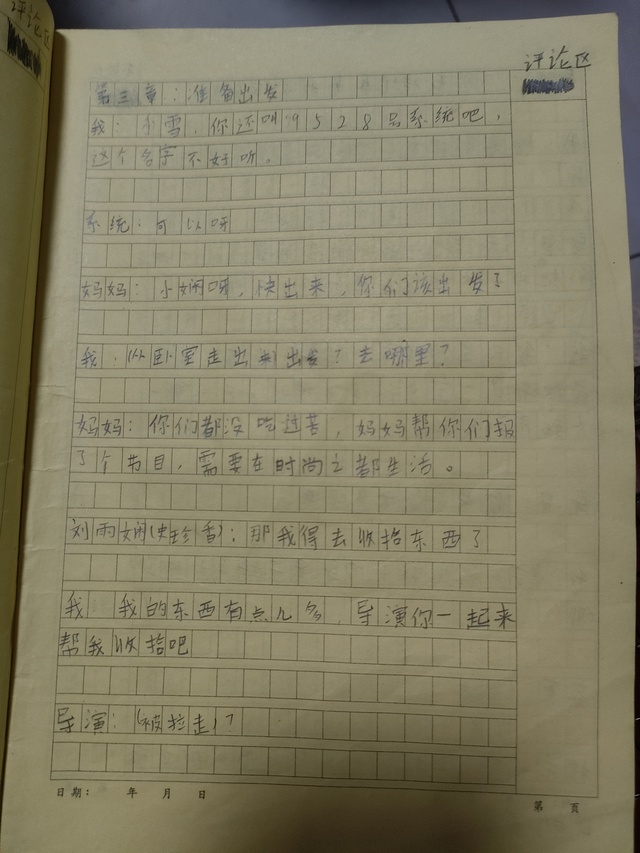 评论区
评论区
第三章：准备出发
我：小雪，你还叫9528号系统吧，
这个名字不好听。
系统：可以呀
妈妈：小娴呀，快出来，你们该出发了
我：(从卧室走出来)出发？去哪里？
妈妈：你们都没吃过苦，妈妈帮你们报
了个节目，需要在时尚之都生活。
刘雨娴(史珍香)：那我得去收拾东西了
我 我的东西有点儿多，导演你一起来
帮我收拾吧
导演：(被拉走)？
日期： 年 月 日
第 页